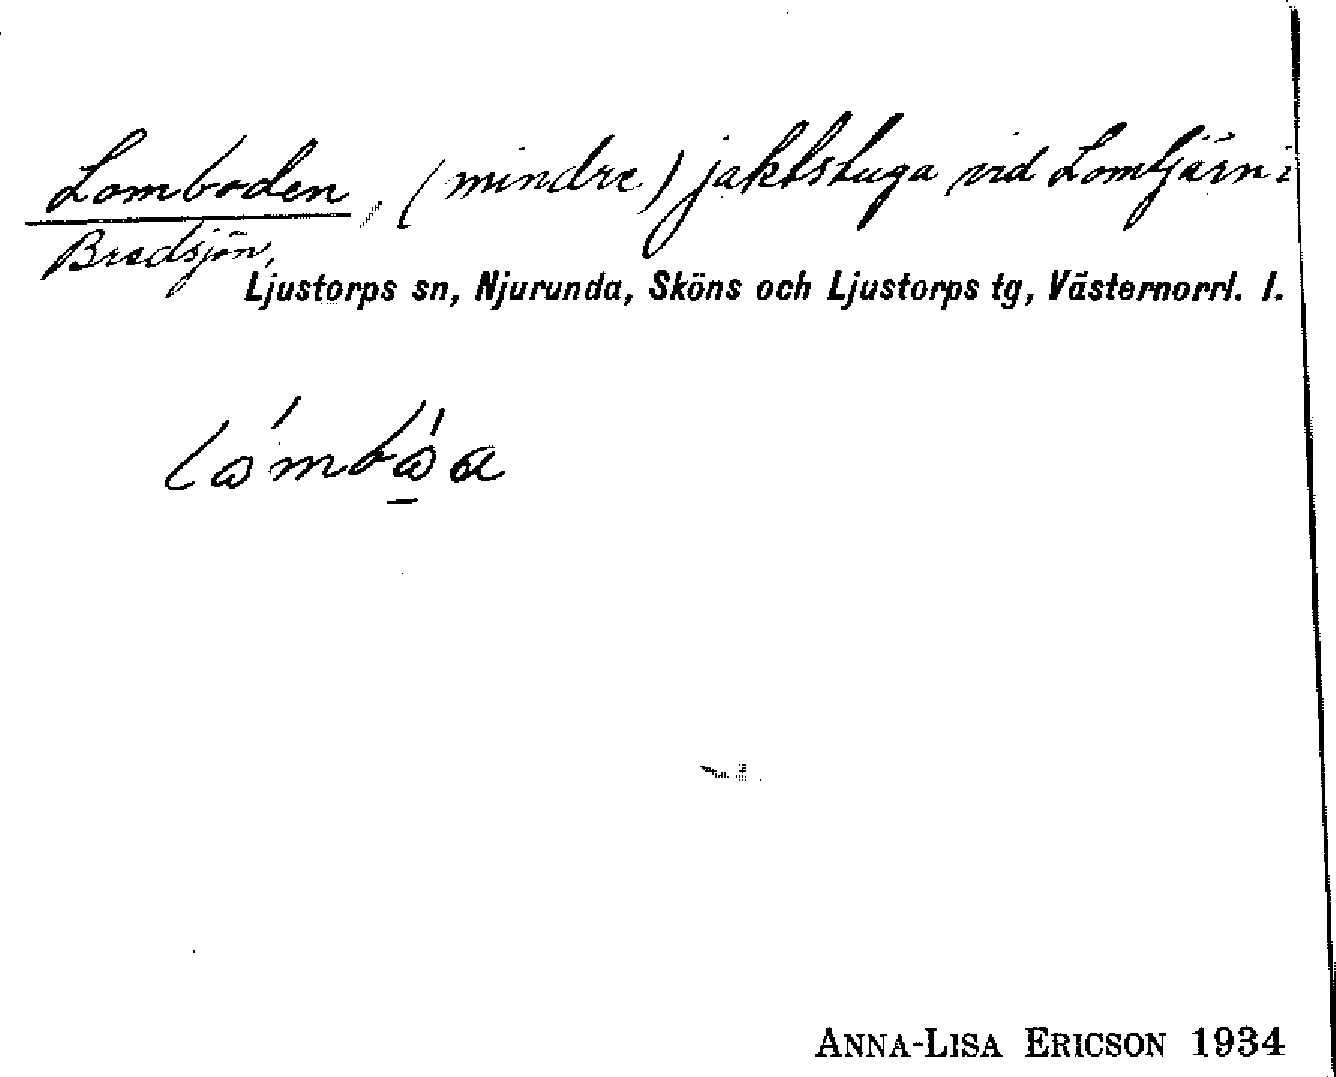 Lomboden, (mindre) jaktstuga vid Lomtjärn i
Bredsjön,
Ljustorps sn, Njurunda, Sköns och Ljustorps tg, Västernorrl. l.
ANNA-LISA ERICSON 1934